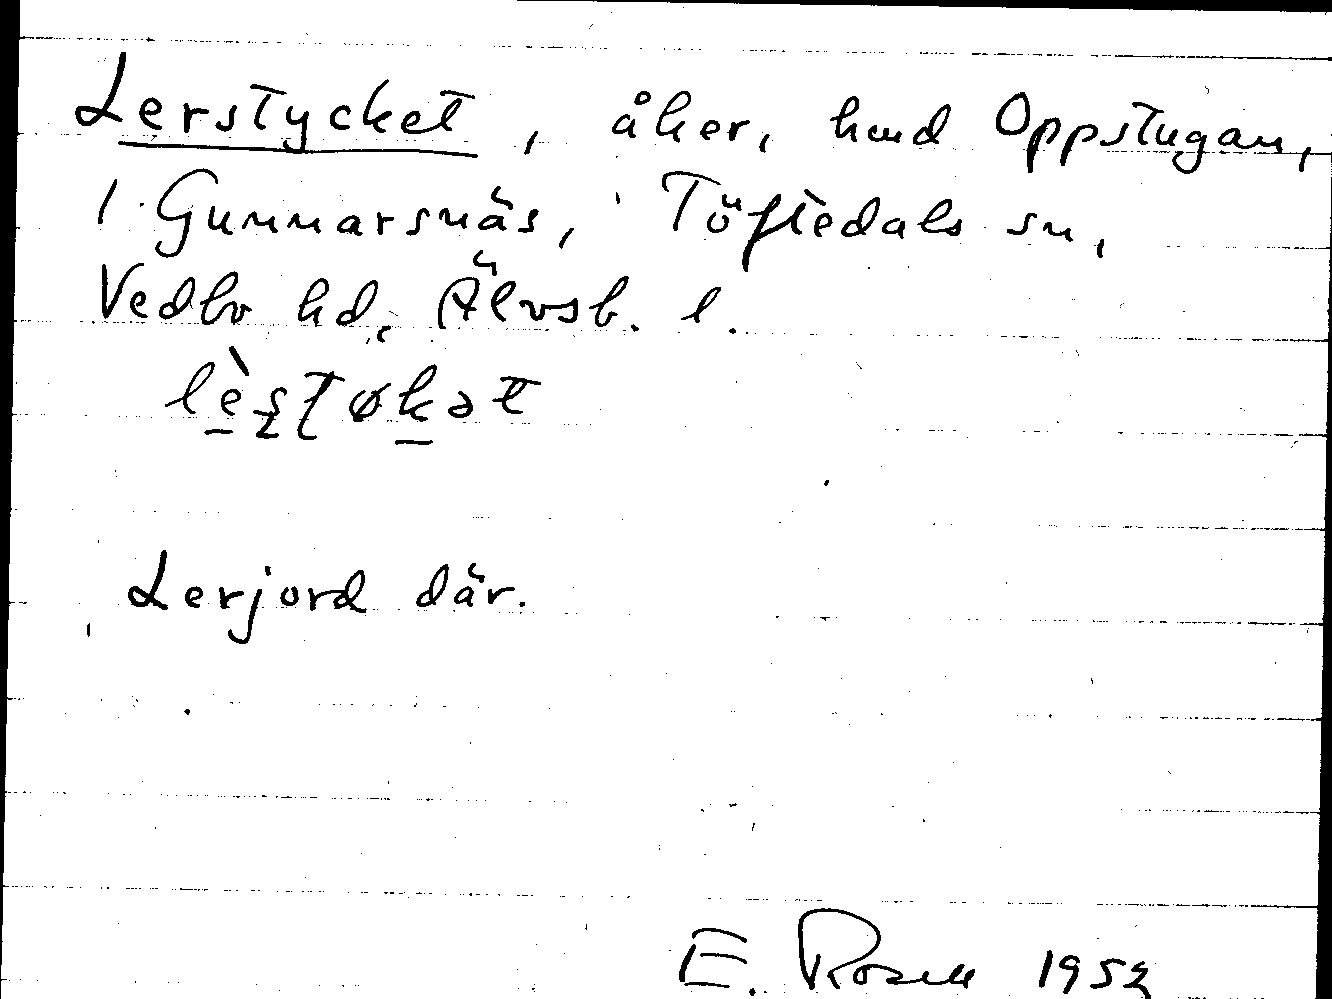 Lerstycket, åker, hmd Oppstugan,
1 Gunnarsnäs, Töftedals sn,
Vedbo hd, Älvsb. l.
lèʂʈøkət
Lerjord där.
E. Rosell 1952